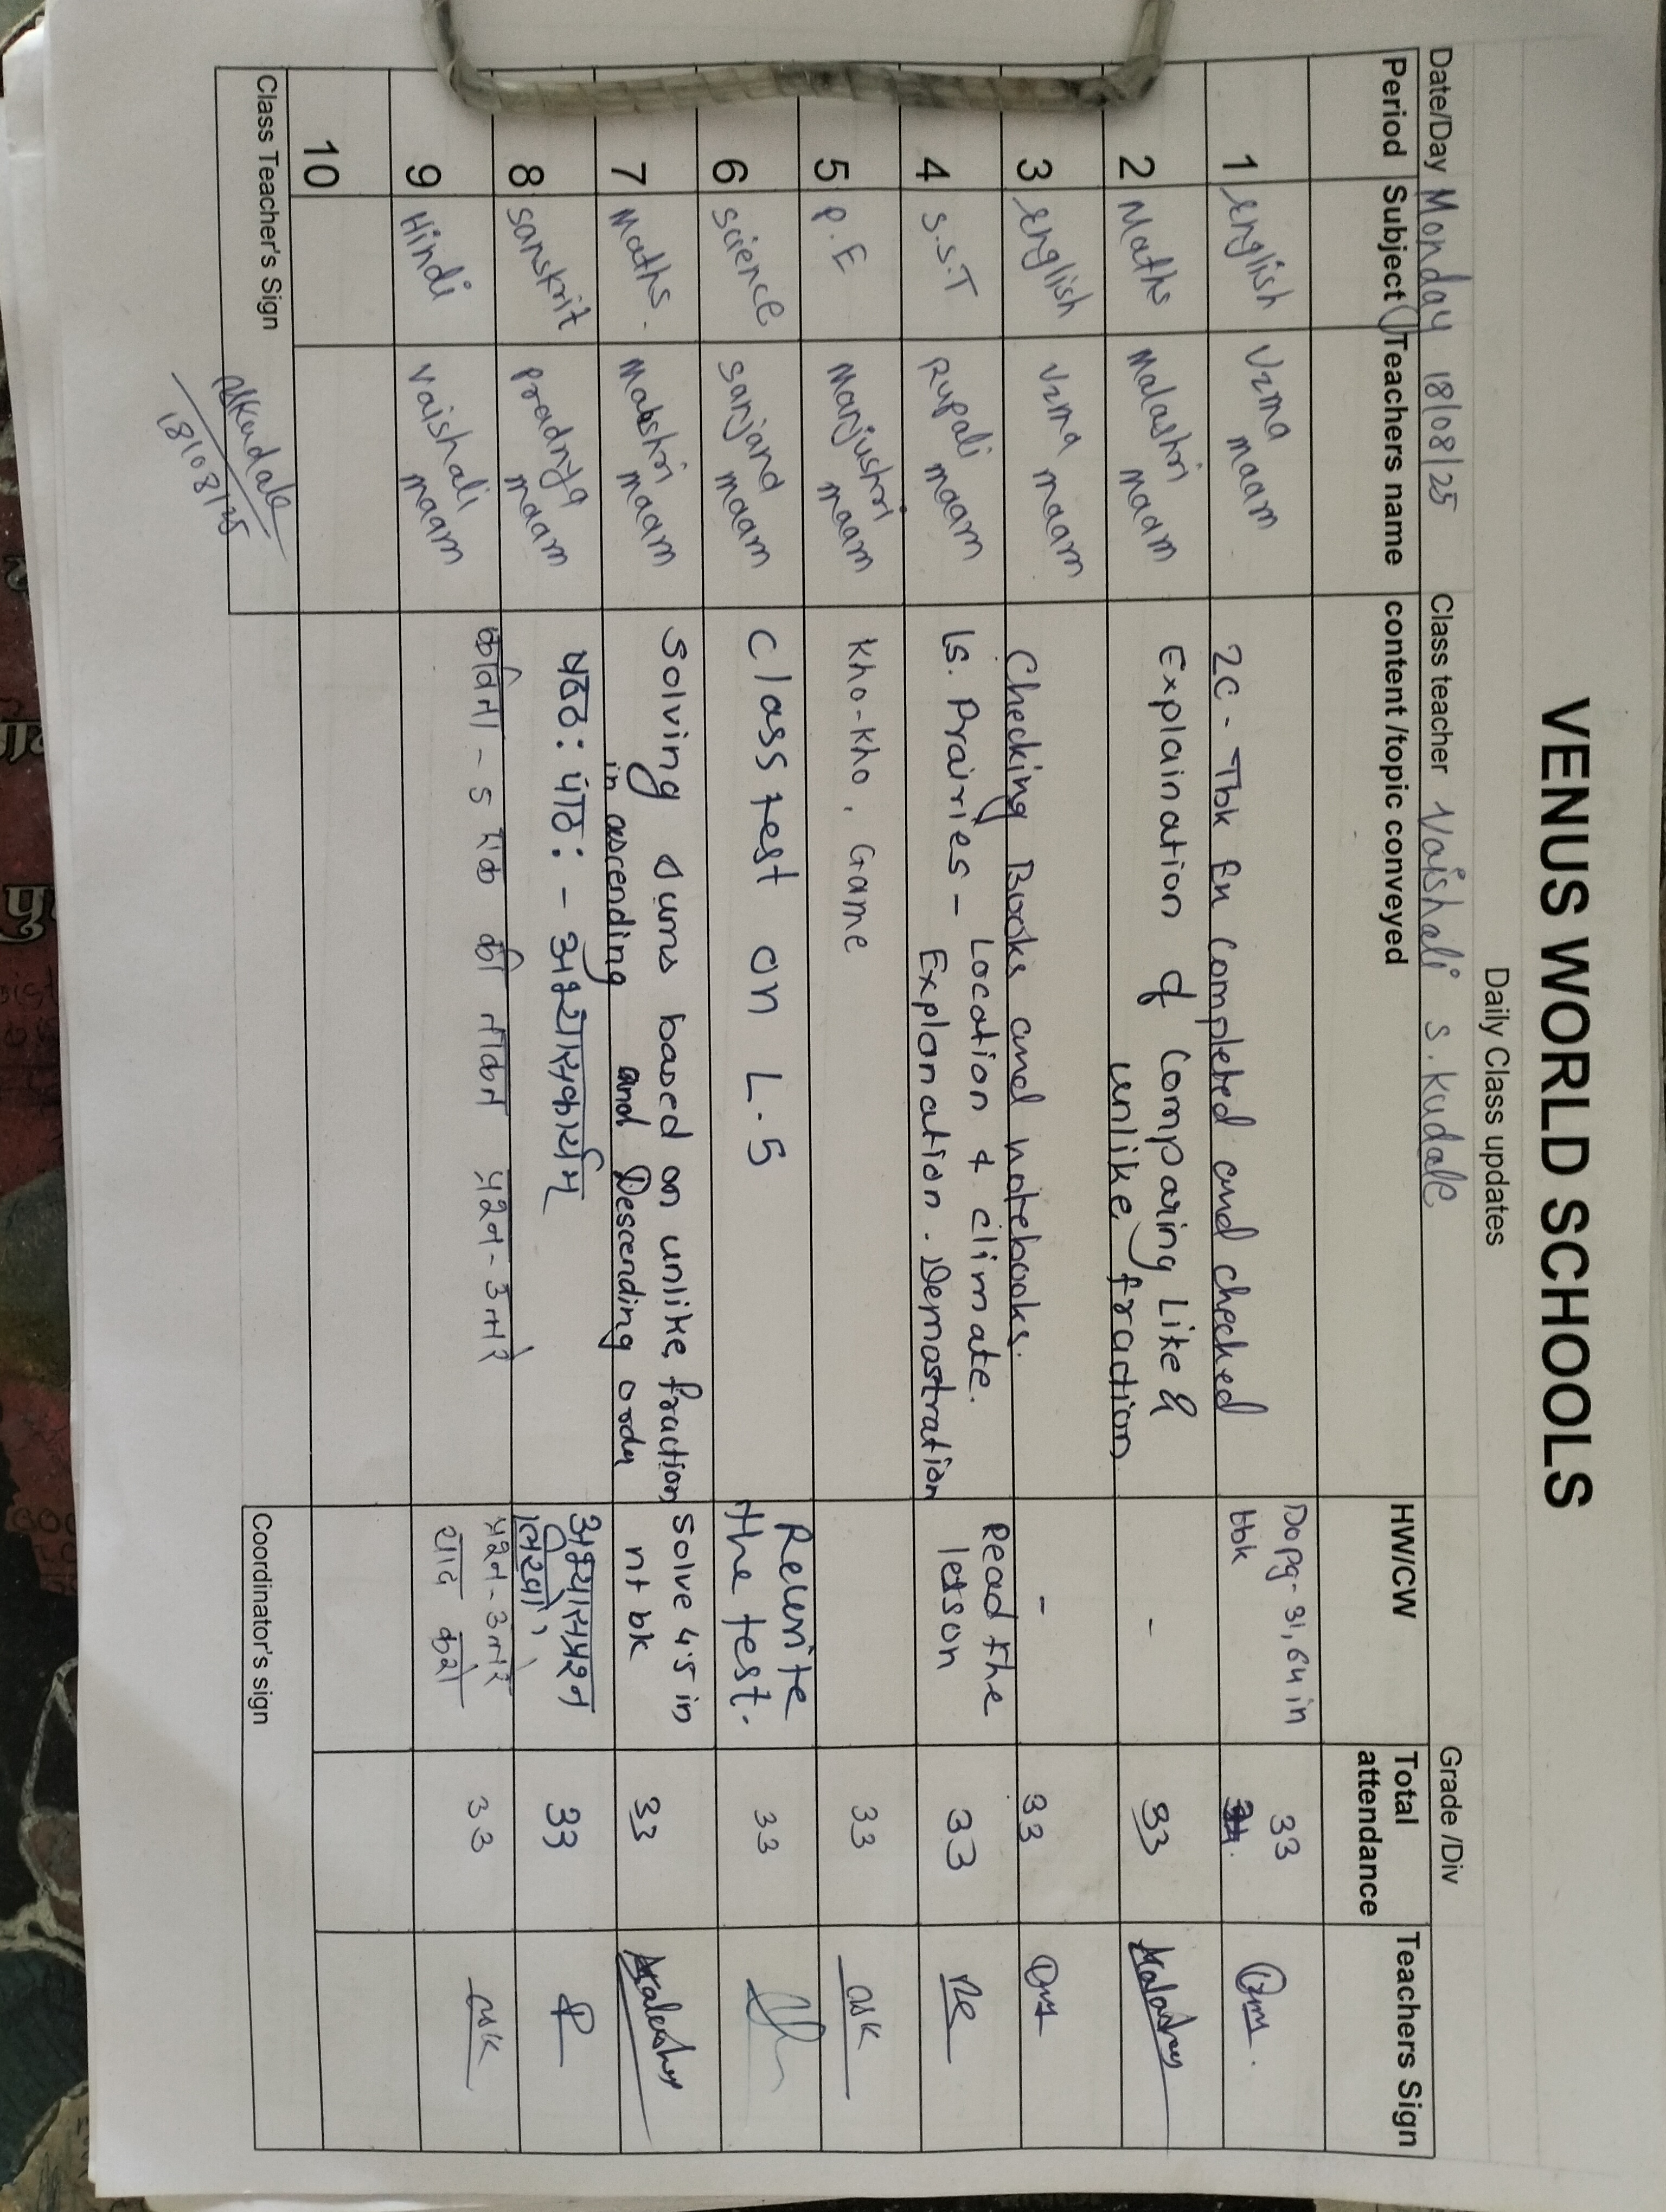 VENUS WORLD SCHOOLS
Daily Class updates
Date/Day Monday 18/08/25 Class teacher Vaishali S. Kudale Grade /Div
Period Subject Teachers name content /topic conveyed HW/CW Total attendance Teachers Sign
1 English Uzma maam 2C - Tbk En Completed and checked Do pg- 31, 64 in tbk 33
2 Maths Malashri maam Explaination of Comparing Like & unlike fraction - 33
3 English Uzma maam Checking Books and notebooks. - 33
4 S.S.T Rupali maam Ls. Prairies - Location & climate. Explanation. Demostration Read the lesson 33
5 P.E Manjushri maam Kho-Kho, Game 33 
6 Science Sanjana maam Class test on L.5 Rewrite the test. 33
7 Maths. Malashri maam Solving sums based on unlike fraction in ascending and Descending order Solve 4,5 in nt bk 33
8 Sanskrit Pradnya maam षष्ठ: पाठ: - अभ्यासकार्यम् अभ्यासप्रश्न लिखो, 33
9 Hindi Vaishali maam कविता - की ताकत प्रश्न-उत्तरे प्रश्न-उत्तरे याद करो 33
10
Class Teacher's Sign 18/08/25 Coordinator's sign